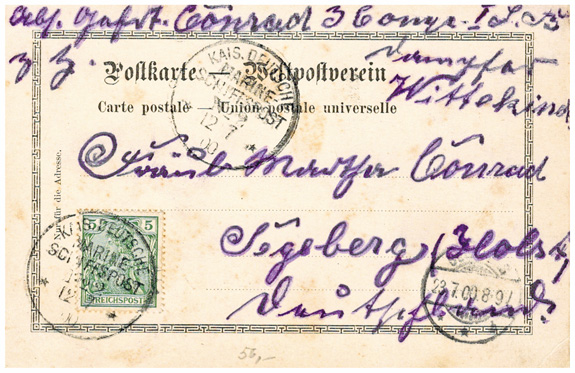 Abs. Gefrt. Conrad 3 Comp. I. S. B.
z. Z. Dampfer
Wittekind
Postkarte — Weltpostverein
Carte postale — Union postale universelle
KAIS. DEUTSCHE
MARINE
SCHIFFSPOST
12 7
00
Nur für die Adresse.
Fräul. Martha Conrad
Segeberg (Holst.)
Deutschland.
5 5
REICHSPOST
KAIS. DEUTSCHE
MARINE
SCHIFFSPOST
12
00
23.7.00.8-9V
56,-